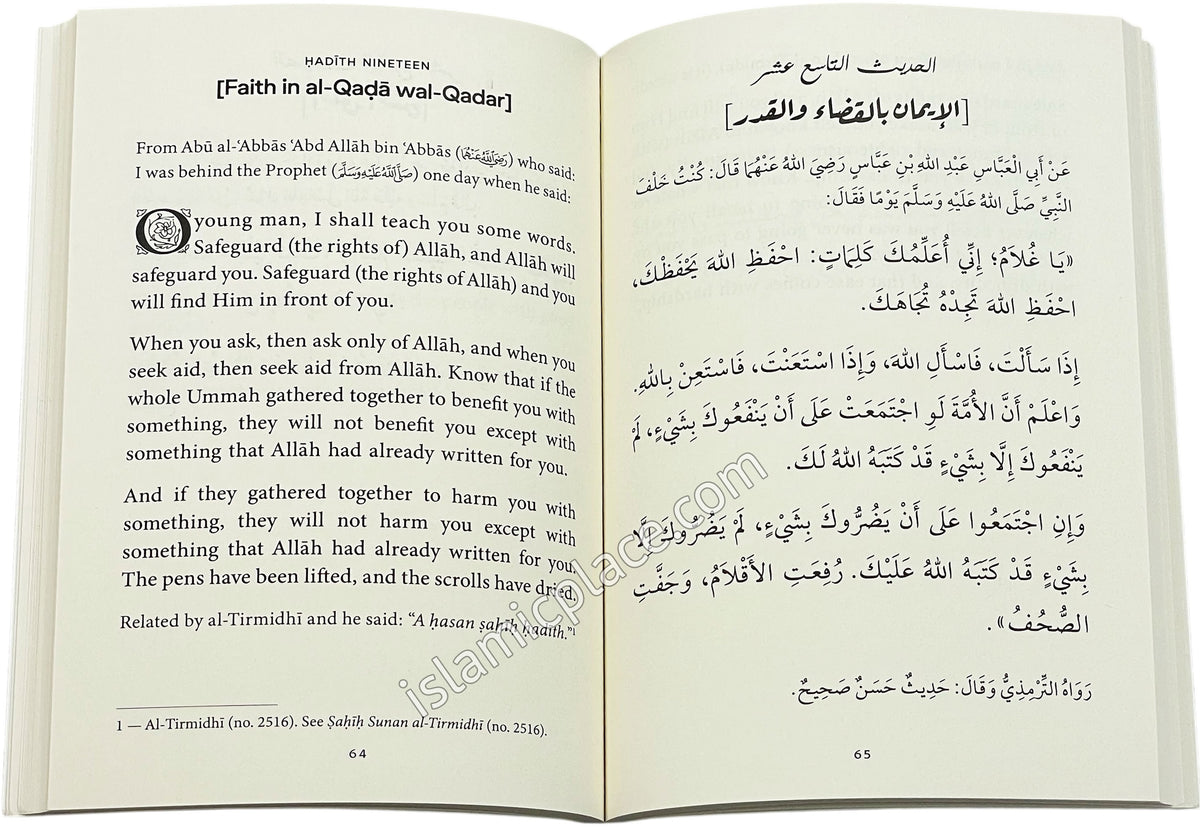 ḤADĪTH NINETEEN
[Faith in al-Qaḍā wal-Qadar]
From Abū al-ʿAbbās ʿAbd Allāh bin ʿAbbās (رَضِيَ اللهُ عَنْهُمَا) who said:
I was behind the Prophet (صَلَّى اللهُ عَلَيْهِ وَسَلَّمَ) one day when he said:
O young man, I shall teach you some words.
Safeguard (the rights of) Allāh, and Allāh will
safeguard you. Safeguard (the rights of Allāh) and you
will find Him in front of you.
When you ask, then ask only of Allāh, and when you
seek aid, then seek aid from Allāh. Know that if the
whole Ummah gathered together to benefit you with
something, they will not benefit you except with
something that Allāh had already written for you.
And if they gathered together to harm you with
something, they will not harm you except with
something that Allāh had already written for you.
The pens have been lifted, and the scrolls have dried.
Related by al-Tirmidhī and he said: “A ḥasan ṣaḥīḥ ḥadīth.”1
1 — Al-Tirmidhī (no. 2516). See Ṣaḥīḥ Sunan al-Tirmidhī (no. 2516).
64
الحديث التاسع عشر
[الإيمان بالقضاء والقدر]
عَنْ أَبِي الْعَبَّاسِ عَبْدِ اللهِ بْنِ عَبَّاسٍ رَضِيَ اللهُ عَنْهُمَا قَالَ: كُنْتُ خَلْفَ
النَّبِيِّ صَلَّى اللهُ عَلَيْهِ وَسَلَّمَ يَوْمًا فَقَالَ:
«يَا غُلَامُ؛ إِنِّي أُعَلِّمُكَ كَلِمَاتٍ: احْفَظِ اللهَ يَحْفَظْكَ،
احْفَظِ اللهَ تَجِدْهُ تُجَاهَكَ.
إِذَا سَأَلْتَ، فَاسْأَلِ اللهَ، وَإِذَا اسْتَعَنْتَ، فَاسْتَعِنْ بِاللهِ.
وَاعْلَمْ أَنَّ الأُمَّةَ لَوِ اجْتَمَعَتْ عَلَى أَنْ يَنْفَعُوكَ بِشَيْءٍ، لَمْ
يَنْفَعُوكَ إِلَّا بِشَيْءٍ قَدْ كَتَبَهُ اللهُ لَكَ.
وَإِنِ اجْتَمَعُوا عَلَى أَنْ يَضُرُّوكَ بِشَيْءٍ، لَمْ يَضُرُّوكَ إِلَّا
بِشَيْءٍ قَدْ كَتَبَهُ اللهُ عَلَيْكَ. رُفِعَتِ الأَقْلَامُ، وَجَفَّتِ
الصُّحُفُ».
رَوَاهُ التِّرْمِذِيُّ وَقَالَ: حَدِيثٌ حَسَنٌ صَحِيحٌ.
65
islamicplace.com